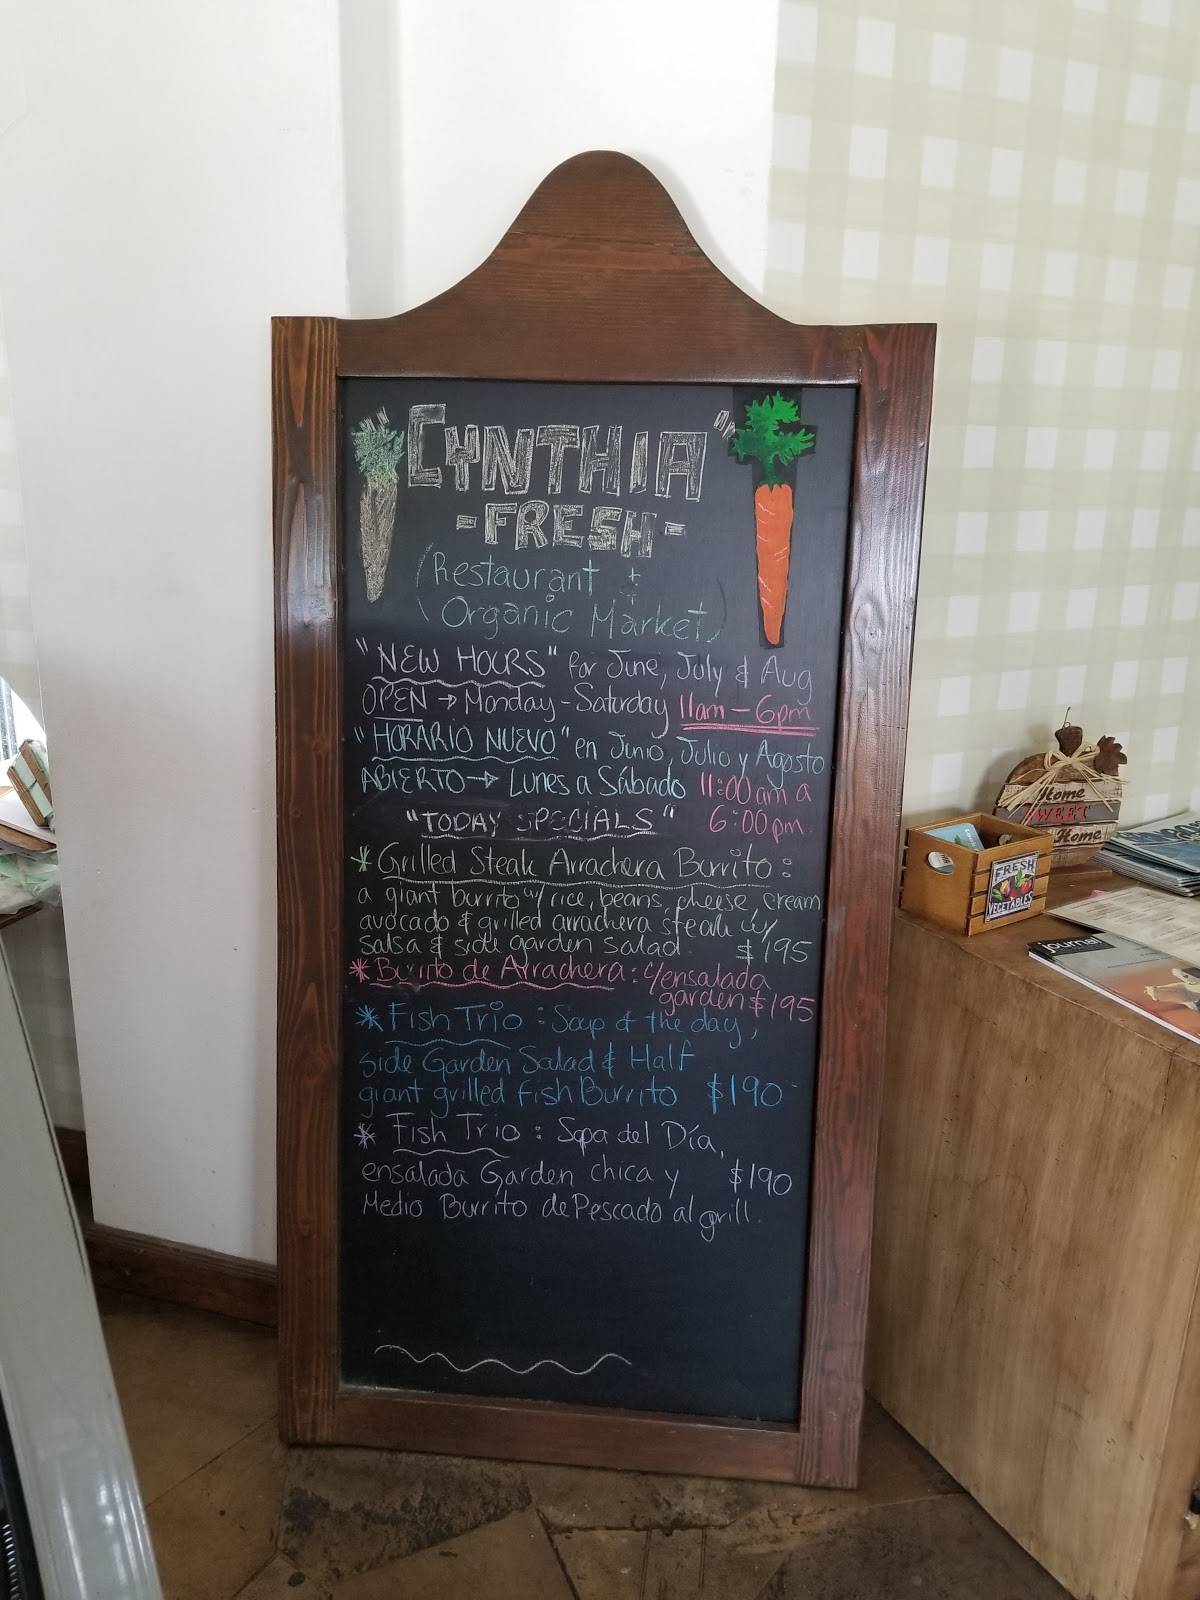 "CYNTHIA"
-FRESH-
(Restaurant &
Organic Market)
"NEW HOURS" for June, July & Aug
OPEN → Monday - Saturday 11am - 6pm
"HORARIO NUEVO" en Junio, Julio y Agosto
ABIERTO → Lunes a Sábado 11:00 am a
6:00pm.
"TODAY SPECIALS"
* Grilled Steak Arrachera Burrito:
a giant burrito w/ rice, beans, cheese, cream
avocado & grilled arrachera steak w/
salsa & side garden salad. $195
* Burrito de Arrachera: c/ensalada
garden $195
* Fish Trio: Soup of the day,
side Garden Salad & Half
giant grilled fish Burrito $190
* Fish Trio: Sopa del Día,
ensalada Garden chica y $190
Medio Burrito de Pescado al grill.
Home
SWEET
Home
FRESH
VEGETABLES
journal